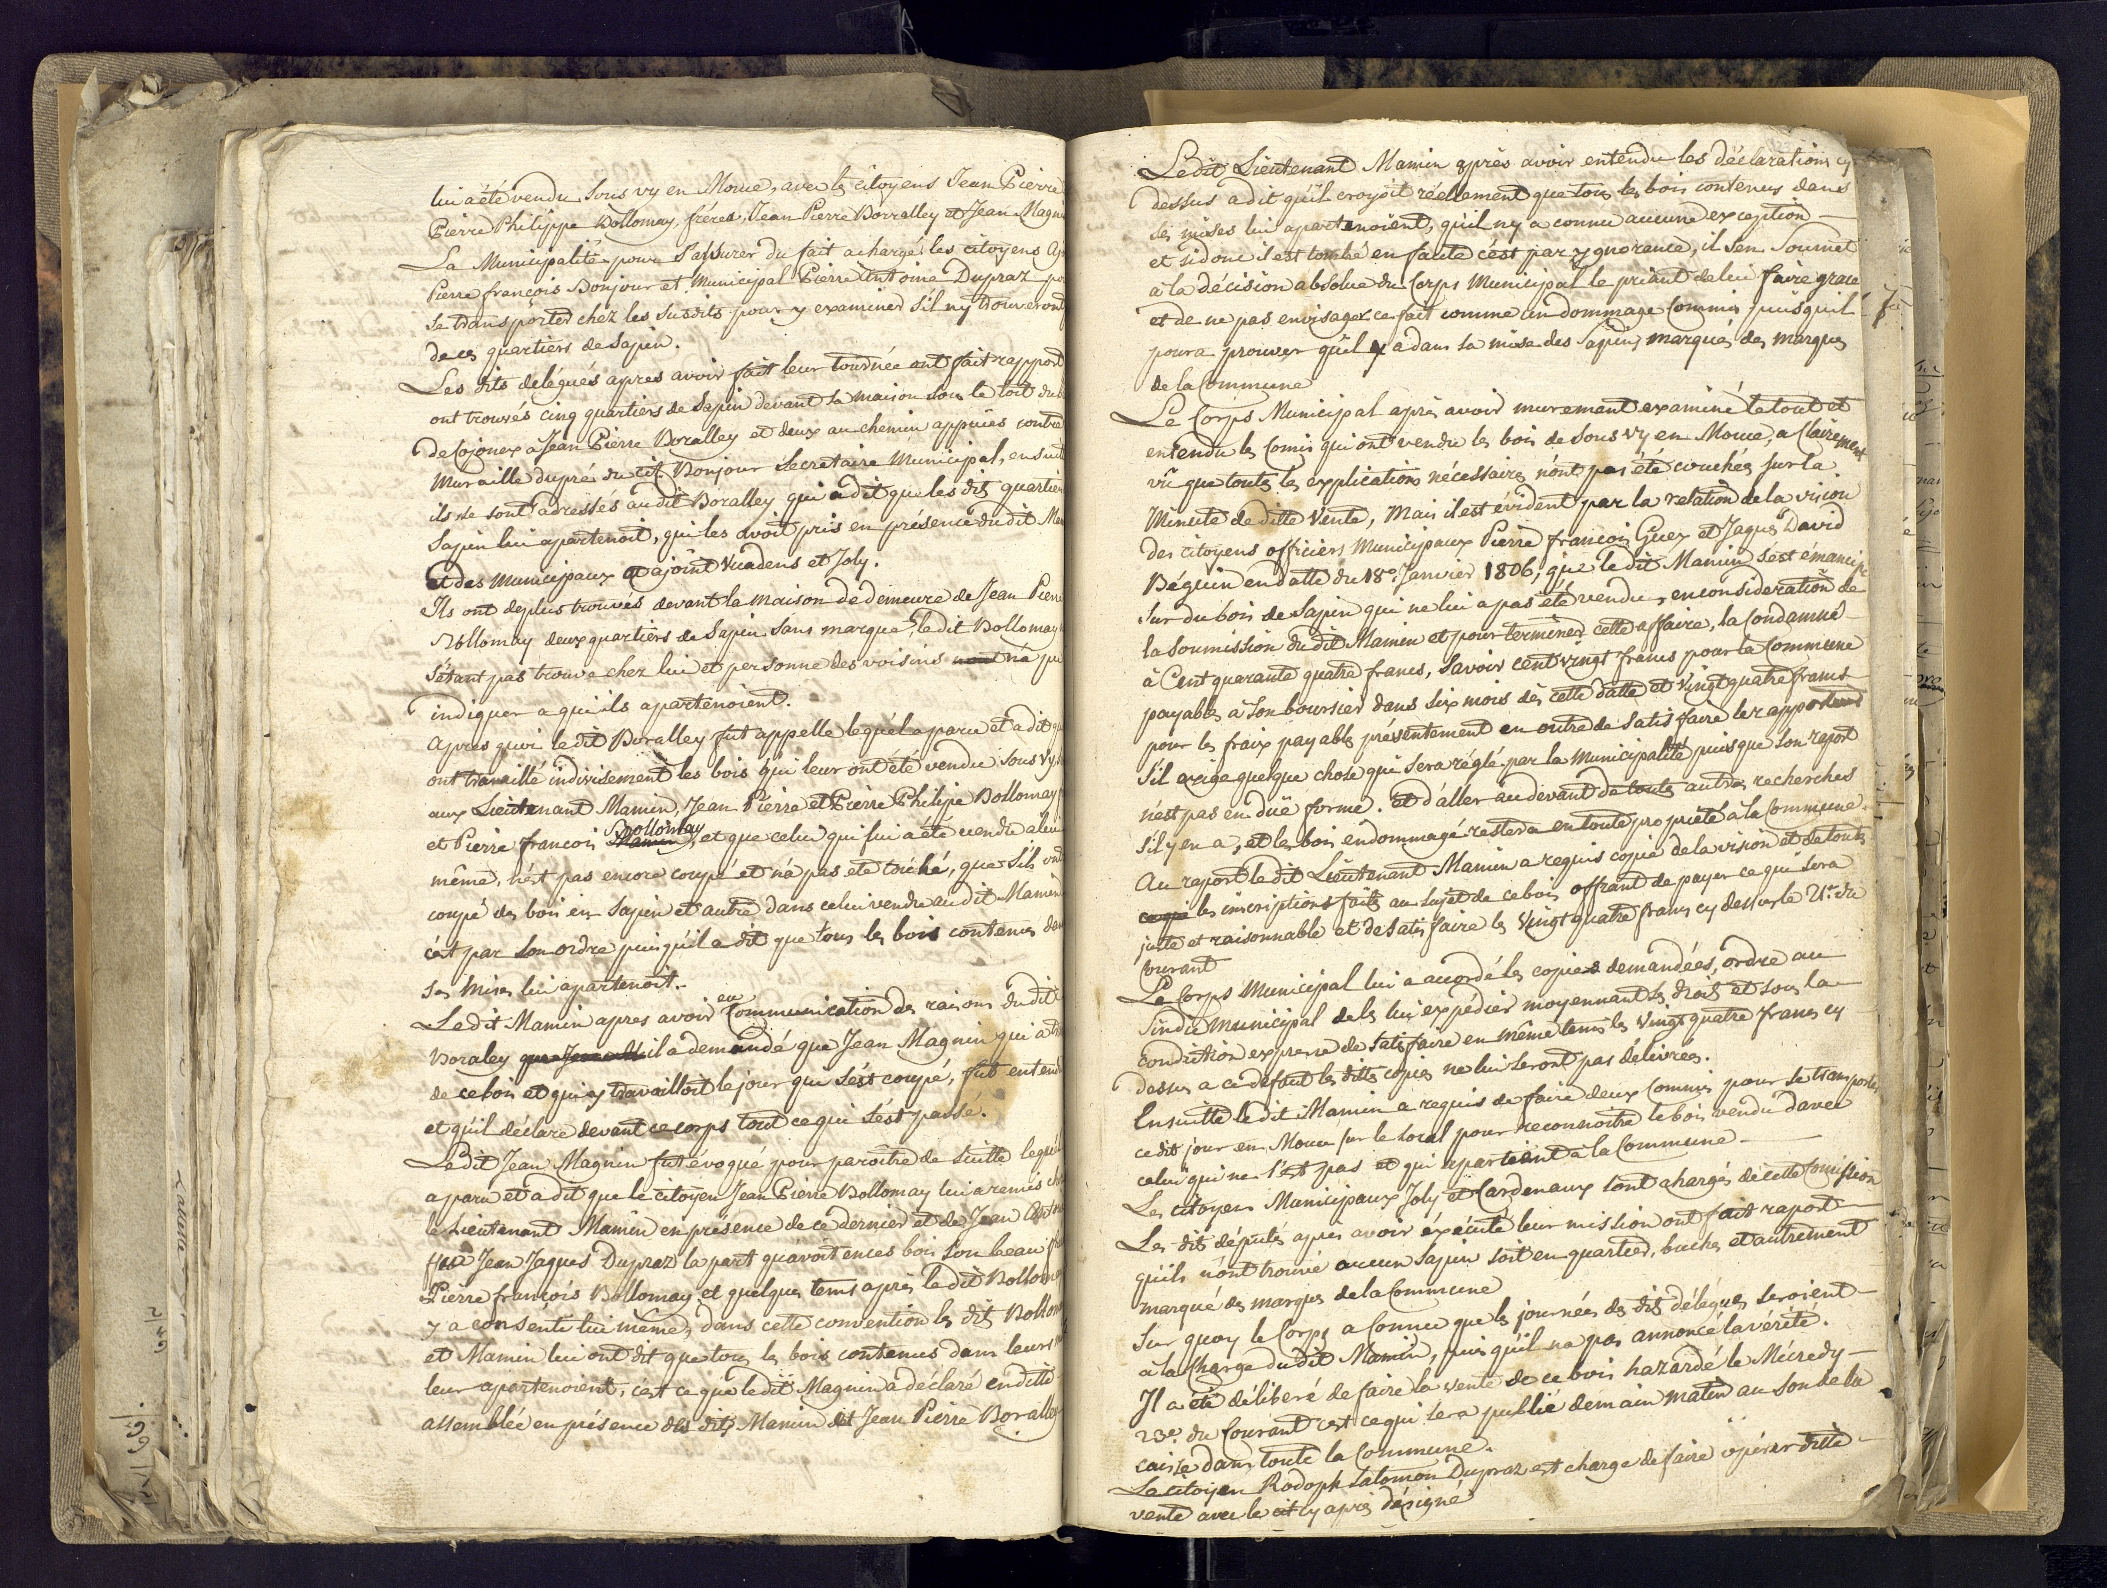 lui a été vendu sous vy en Moue, avec les citoyens Jean Pierre
Pierre Philippe Bollomay, fréres, Jean Pierre Borralley et Jean Magn
La Municipalité pour S'assurer du fait a chargé les citoyens
Pierre françois Bonjour et Municipal Pierre Antoine Dupraz
se transporter chez les susdits pour y examiner s'il n'y trouveront
de ces quartiers de Sapin.
Les dits délégués apres avoir fait leur tournée ont fait rapport
ont trouvés cinq quartiers de Sapin devant la maison sous le toit du
de Cojonex a Jean Pierre Boralley et deux au chemin appuiés contre
Muraille du pré du cit. Bonjour Secretaire Municipal, ensuit
ils se sont adressés audit Boralley qui a dit que les dits quartier
Sapin lui apartenoit, qui les avoit pris en présence du dit Ma
et des Municipaux et ajoint Vuadens et Joly.
Ils ont deplus trouvés devant la maison de demeure de Jean Pierre
Bollomay deux quartiers de Sapin sans marque, le dit Bollomay
s'étant pas trouvé chez lui et personne des voisins n'a pu
indiquer a qui ils apartenoient.
Apres quoi le dit Boralley fut appelle lequel a paru et a dit qu
ont travaillé indivisement les bois qui leur ont été vendu sous Vy
aux Lieutenant Mamin, Jean Pierre et Pierre Philipe Bollomay
et Pierre francois Mamin Bollomay, et que celui qui lui a été vendu a lui
même, n'est pas encore coupé et n'a pas eté touché, que s'ils ont
coupé des bois en Sapin et autre dans celui vendu au dit Mamin
c'est par son ordre puisqu'il a dit que tous les bois contenus dan
ses Mises lui apartenoit.
Le dit Mamin apres avoir eu Communication des raisons du dit
Boraley il a demandé que Jean Magnin qui a
de ce bois et qui y travailloit le jour qui s'est coupé, fut entend
et qu'il déclare devant ce corps tout ce qui s'est passé.
Le dit Jean Magnin fut évoqué pour paroitre de suitte lequel
a paru et a dit que le citoyen Jean Pierre Bollomay lui a remis
le Lieutenant Mamin en présence de ce dernier et de Jean Anto
feu Jean Jaques Dupraz la part qu'avoit en ces bois son beau
Pierre françois Bollomay et quelques tems après le dit Bollom
y a consenti lui même, dans cette convention les dits Bollom
et Mamin lui ont dit que tous les bois contenus dans leurs
leur apartenoient, c'est ce que le dit Magnin a déclaré en ditte
assemblée en présence des dits Mamin et Jean Pierre Boralley
Le dit Lieutenant Mamin après avoir entendu les déclarations cy
dessus a dit qu'il croyoit réellement que tous les bois contenus dans
ses mises lui apartenoient, qu'il n'y a connu aucune exception
et si donc il est tombé en faute c'est par ygnorance, il s'en soumet
à la décision absolue du Corps Municipal le priant de lui faire grace
et de ne pas envisager ce fait comme un dommage Commis puisqu'il
poura prouver qu'il y a dans sa mise des Sapins marqués des marques
de la Commune
Le Corps Municipal après avoir murement examiné le tout et
entendu les Comis qui ont vendu les bois de sous Vy en Moue, a Clairement
vû que toutes les explications nécessaires n'ont pas été couchées sur la
Minute de ditte Vente, mais il est évident par la relation de la vision
des citoyens officiers Municipaux Pierre francois Guex et Jaques David
Béguin en datte du 18e. Janvier 1806, que le dit Mamin s'est émancipé
sur du bois de Sapin qui ne lui a pas été vendu, en considération de
la Soumission du dit Mamin et pour terminer cette affaire, la Condamné
à Cent quarante quatre francs, Savoir cent vingt francs pour la Commune
payables à son boursier dans six mois dès cette datte et Vingt quatre francs
pour les fraix payables présentement en outre de satisfaire le rapporteur
s'il exige quelque chose qui sera réglé par la Municipalité puisque son raport
n'est pas en duë forme. et d'aller au devant de toutes autres recherches
s'il y en a, et les bois endommagé restera en toute propriété à la Commune.
Au raport le dit Lieutenant Mamin a requis copie de la vision et de toutes
les inscriptions faites au sujet de ce bois offrant de payer ce qui sera
juste et raisonnable et de satisfaire les Vingt quatre francs cy dessus le 21e. du
Courant
Le Corps Municipal lui a accordé les copies demandées, ordre au
Sindic Municipal de les lui expédier moyennant ses droits et sous la
condition expresse de satisfaire en même tems les Vingt quatre francs cy
dessus a ce défaut les dittes copies ne lui seront pas délivrées.
Ensuitte le dit Mamin a requis de faire deux Commis pour se transporter
ce dit jour en Moue sur le local pour reconnoitre le bois vendu d'avec
celui qui ne l'est pas et qui apartient à la Commune
Les citoyens Municipaux Joly et Cardenaux sont chargés de cette Commission
Les dits députés apres avoir éxécuté leur mission ont fait raport
qu'ils n'ont trouvé aucun Sapin soit en quartier, buches et autrement
marqué des marques de la Commune
Sur quoy le Corps a Connu que les journées des dits délégués seroient
à la Charge du dit Mamin, puis qu'il n'a pas annoncé la vérité.
Il a été délibéré de faire la vente de ce bois hazardé le Mécredy
23e. du Courant c'est ce qui sera publié demain matin au son de la
caisse dans toute la Commune.
Le citoyen Rodoph Salomon Dupraz est charge de faire opérer ditte
vente avec le cit cy apres désigné